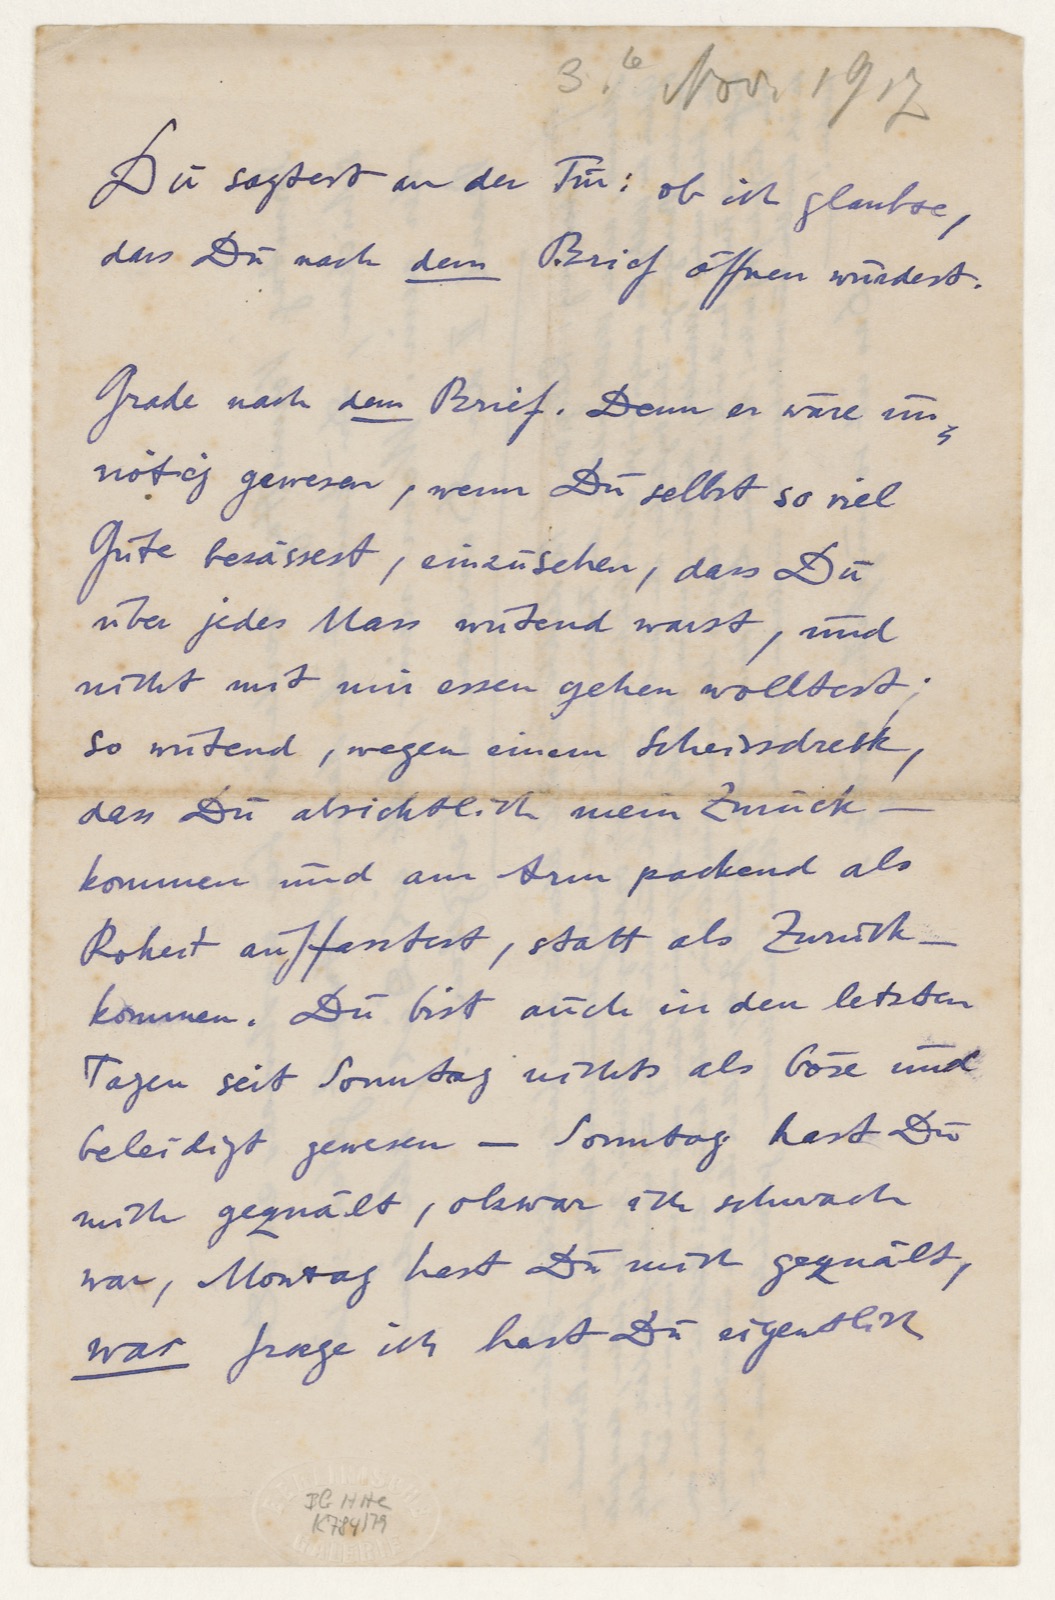 3. Nov. 1917
Du sagtest an der Tür: ob ich glaubte,
dass Du nach dem Brief öffnen würdest.
Grade nach dem Brief. Denn er wäre un-
nötig gewesen, wenn Du selbst so viel
Güte besässest, einzusehen, dass Du
über jedes Mass wütend warst, und
nicht mit mir essen gehen wolltest;
so wütend, wegen einem Scheissdreck,
dass Du absichtlich mein Zurück-
kommen und am Arm packend als
Roheit auffasstest, statt als Zurück-
kommen. Du bist auch in den letzten
Tagen seit Sonntag nichts als böse und
beleidigt gewesen — Sonntag hast Du
mich gequält, obzwar ich schwach
war, Montag hast Du mich gequält,
was frage ich hast Du eigentlich
BG HHC
K784/79